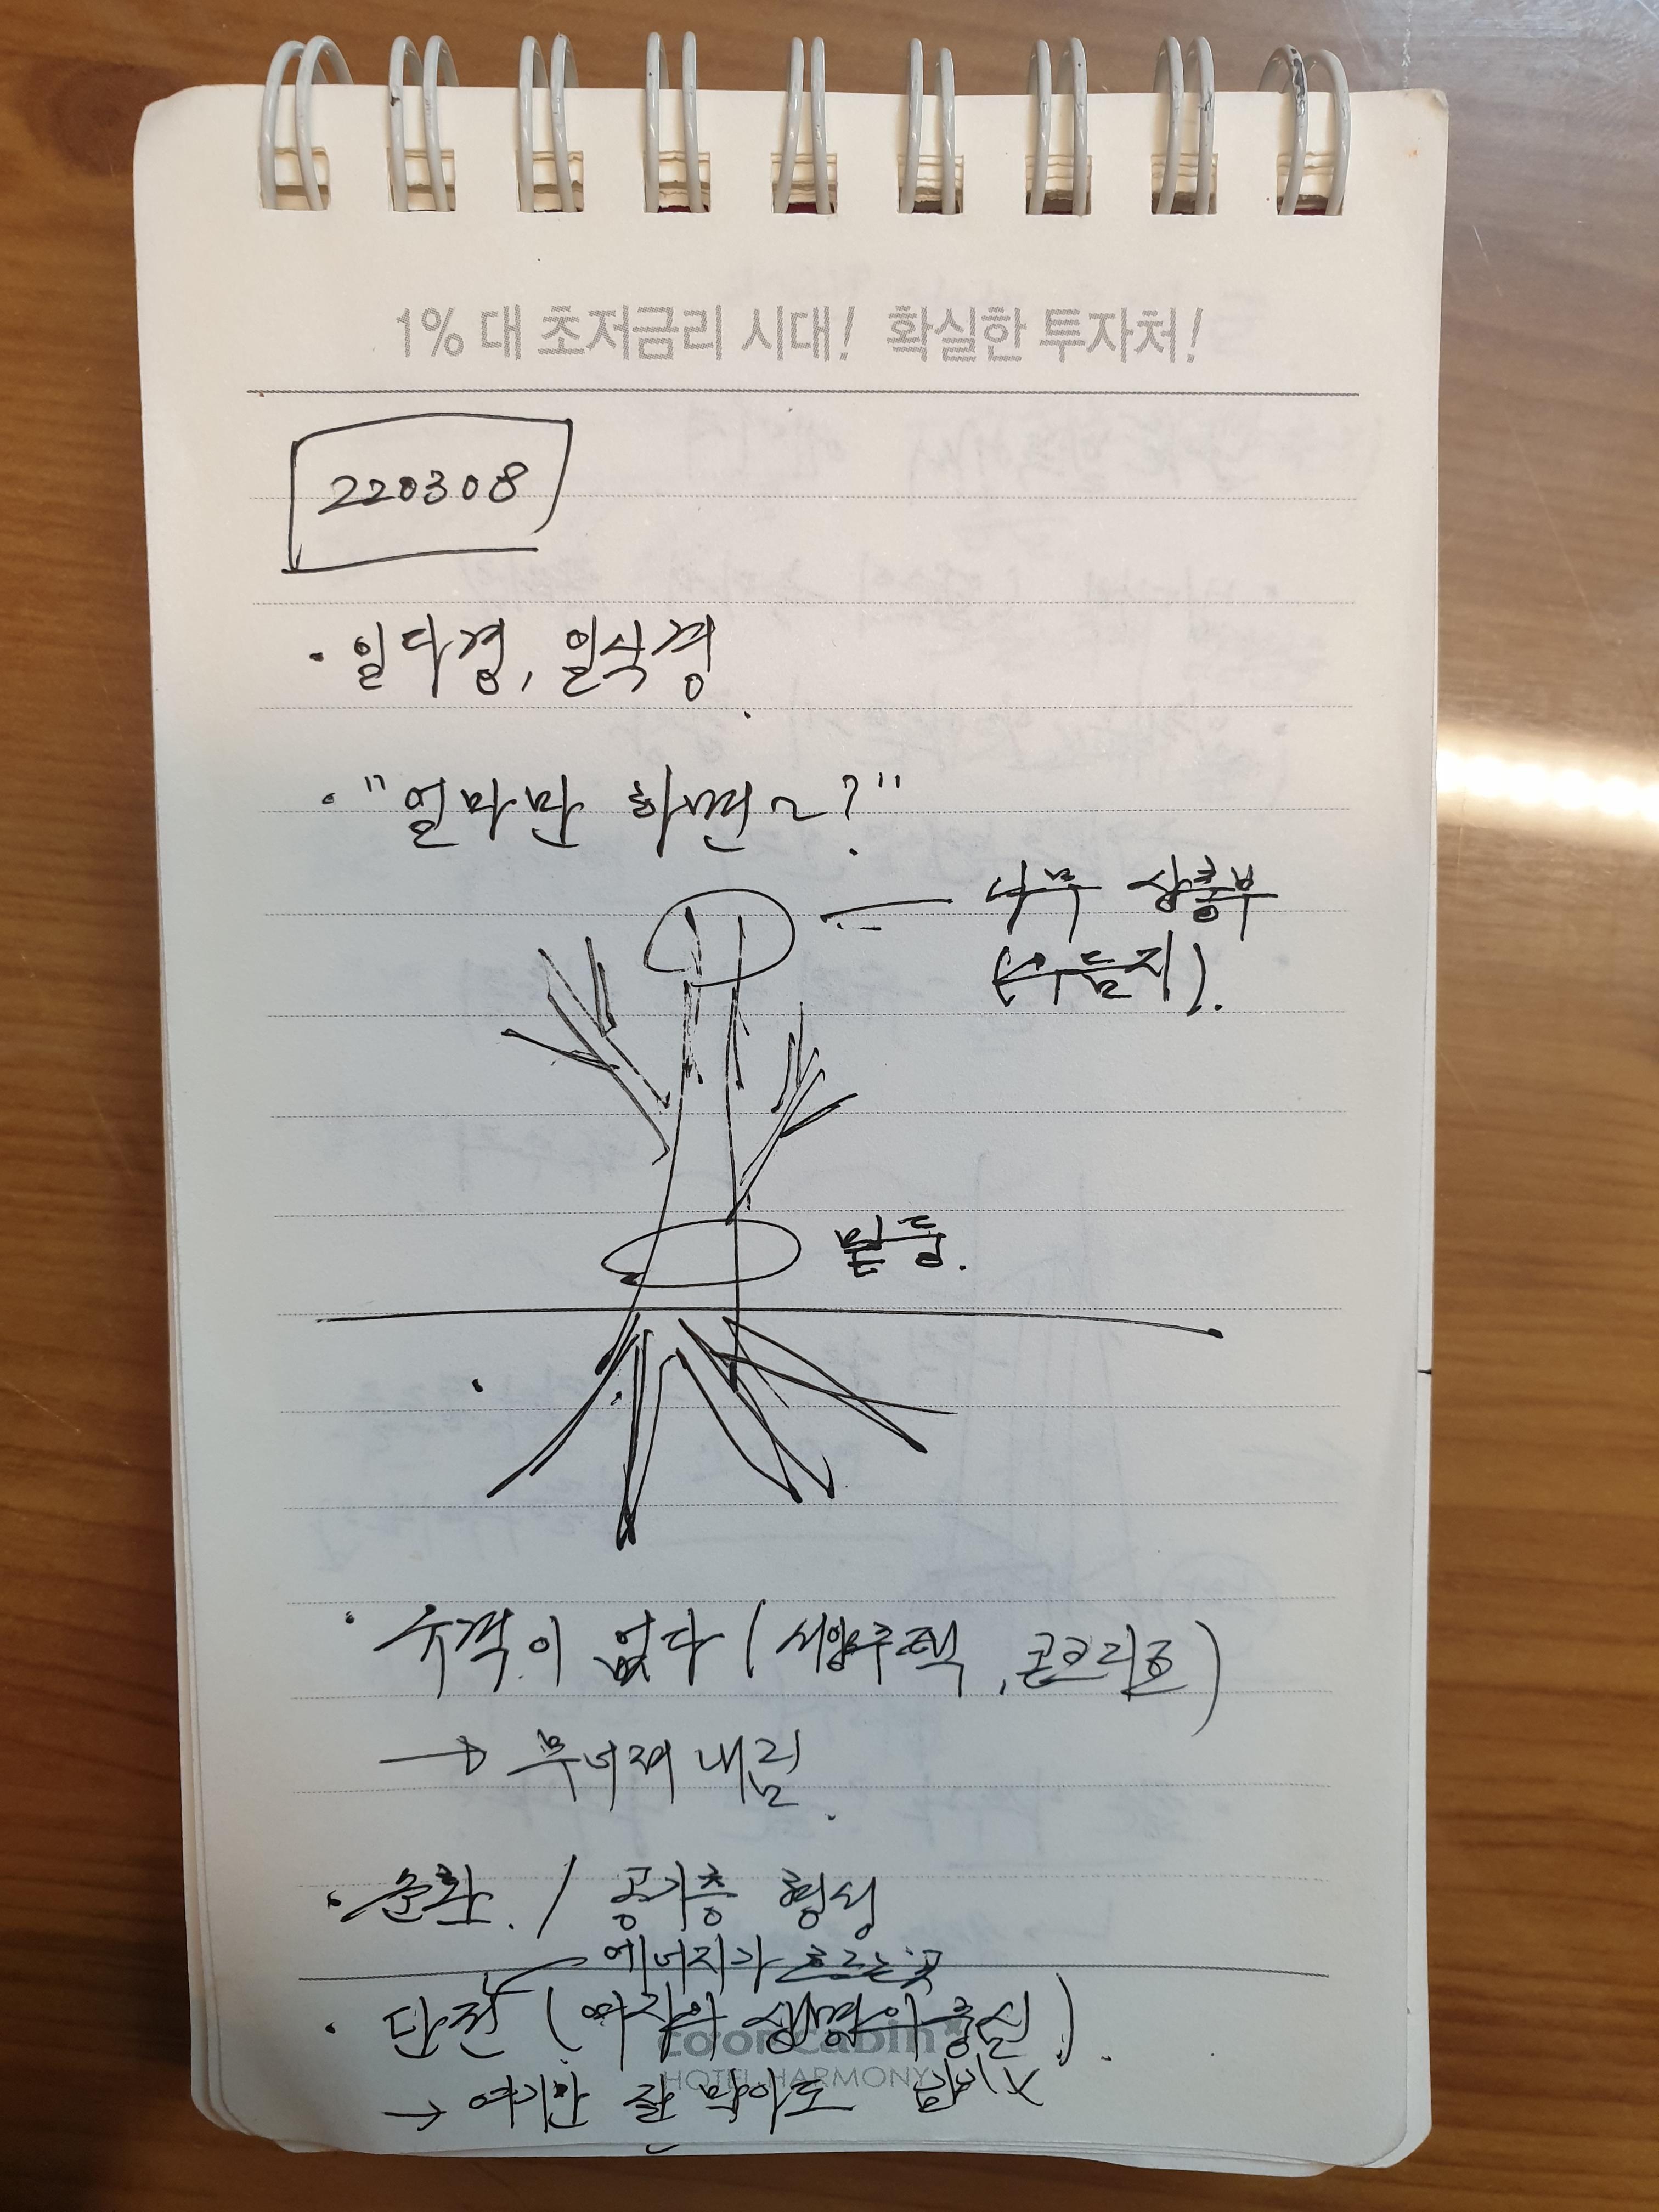 1% 대 초저금리 시대! 확실한 투자처!
220308
· 일다경, 일식경.
· "얼마만 하면~?"
나무 상층부
(우듬지).
밑둥.
· 규격이 없다 (서양주택, 콘크리트)
→ 무너져 내림.
· 순환. / 공기층 형성
에너지가 흐르는 곳
· 단전 (여자의 생명의 중심).
toon cabin
HOTEL HARMONY
→ 여기만 잘 막아도